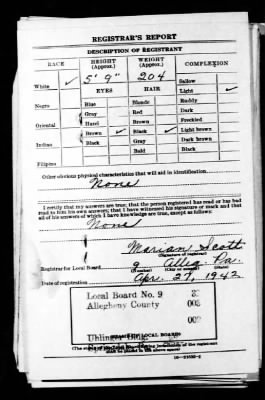 REGISTRAR'S REPORT
DESCRIPTION OF REGISTRANT
RACE HEIGHT (Approx.) WEIGHT (Approx.) COMPLEXION
White ✓ 5' 9" 204 Sallow
Light ✓
EYES HAIR
Negro Blue Blonde Ruddy
Gray Red Dark
Oriental Hazel Brown Freckled
Brown ✓ Black ✓ Light brown
Indian Black Gray Dark brown
Bald Black
Filipino
Other obvious physical characteristics that will aid in identification
None
I certify that my answers are true; that the person registered has read or has had
read to him his own answers; that I have witnessed his signature or mark and that
all of his answers of which I have knowledge are true, except as follows:
None
Marian Scott
(Signature of registrar)
Registrar for Local Board 9 Alleg. Pa.
(Number) (City or county) (State)
Date of registration Apr. 27, 1942
Local Board No. 9
Allegheny County 003
LOCAL BOARD